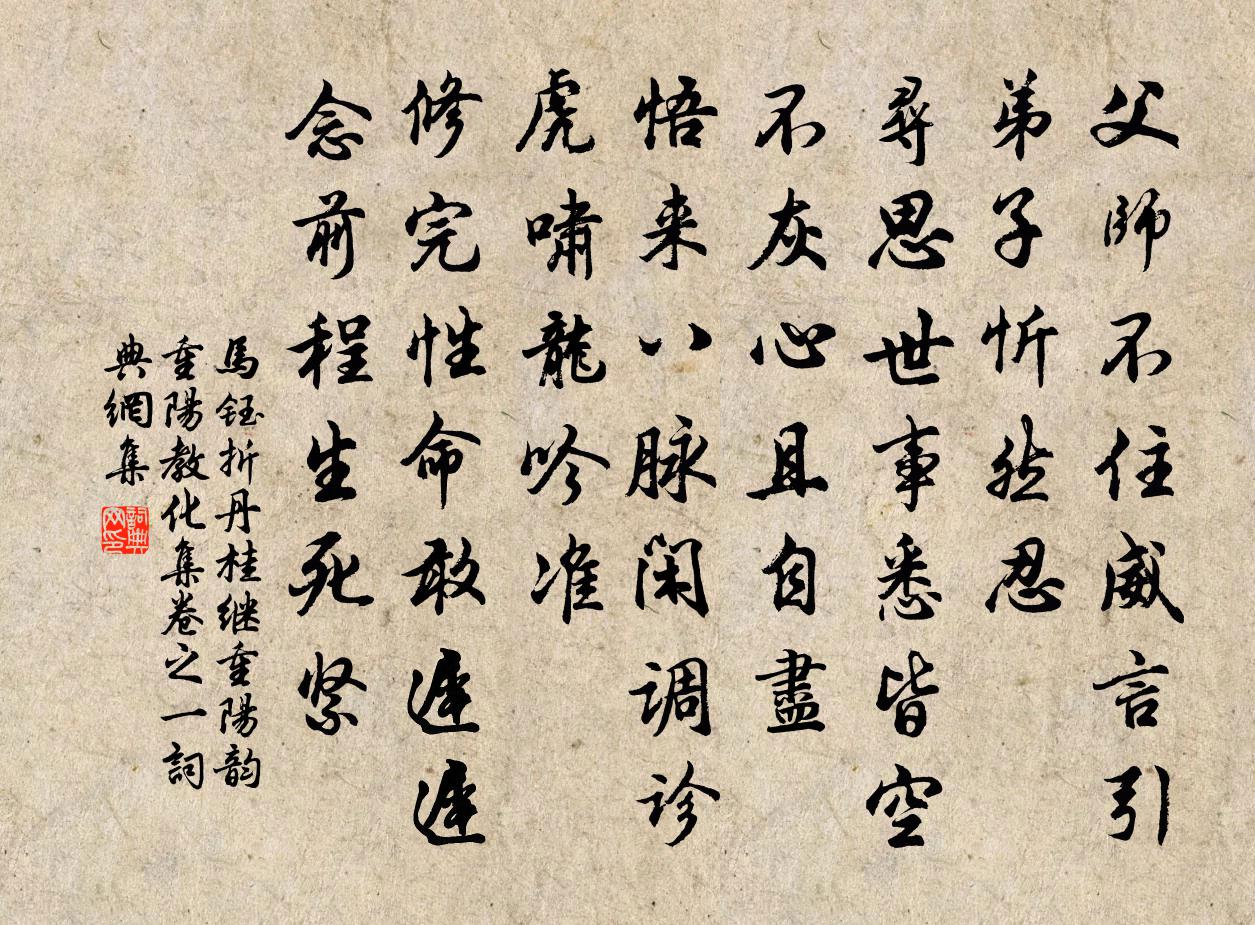 父師不住威言引
弟子忻然忍
尋思世事悉皆空
不灰心且自盡
悟来八脉闲調診
虎嘯龍吟准
修完性命敢遲遲
念前程生死紧
馬钰折丹桂继重陽韵
重陽教化集卷之一詞
典網集
詞典网印